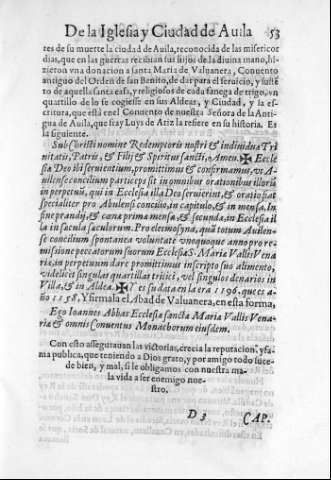 De la Iglesia y Ciudad de Auila 53
tes de su muerte la ciodad de Auila, reconocida de las misericor
dias, que en las guerras recibian sus hijos de la diuina mano, hi-
zieron vna donacion a santa Maria de Valuanera, Conuento
antiguo del Orden de san Benito, de dar para el seruicio, y suste
to de aquella santa casa, y religiosos de cada fanega de trigo, vn
quartillo de lo se cogiesse en sus Aldeas, y Ciudad, y la es-
critura, que està en el Conuento de nuestra Señora de la Anti-
gua de Auila, que fray Luys de Ariz la refiere en su historia. Es
la siguiente.
Sub Christi nomine Redemptoris nostri & indiuidua Tri
nitatis, Patris, & Filij & Spiritus sancti, a Amen. ✠ Eccle
sia Deo ibi seruientium, promittimus & confirmamus, vt A-
uilense concilium particeps sit in omnibus orationibus illoriũ
in perpetuũ, qui in Ecclesia illa Deo seruierint, & oratio fiat
specialiter pro Abulensi concilio, in capitulo, & in mensa. In
fine prandij, & cœnæ prima mensa, & secunda, in Ecclesia il
la in sæcula sæculorum. Pro eleemosyna, quã totum Auilen-
se concilium spontanea voluntate vnoquoque anno pro re-
missione peccatorum suorum Ecclesiæ S. Mariæ Vallis Vena
riæ, in perpetuum dare promittimus inscripto suo alimento,
videlicet singulas quartillas tritici, vel singulos denarios in
Villa, & in Aldea. ✠ Y es su data en la era 1196. que es a-
ño 1158. Y firma la el Abad de Valuanera, en esta forma,
Ego Ioannes Abbas Ecclesiæ sanctæ Mariæ Vallis Vena-
riæ & omnis Conuentus Monachorum eiusdem.
Con esto assegurauan las victorias, crecia la reputacion, y fa-
ma publica, que teniendo a Dios grato, y por amigo todo suce-
de bien, y mal, si le obligamos con nuestra ma-
la vida a ser enemigo nue-
stro.
D 3 CAP.